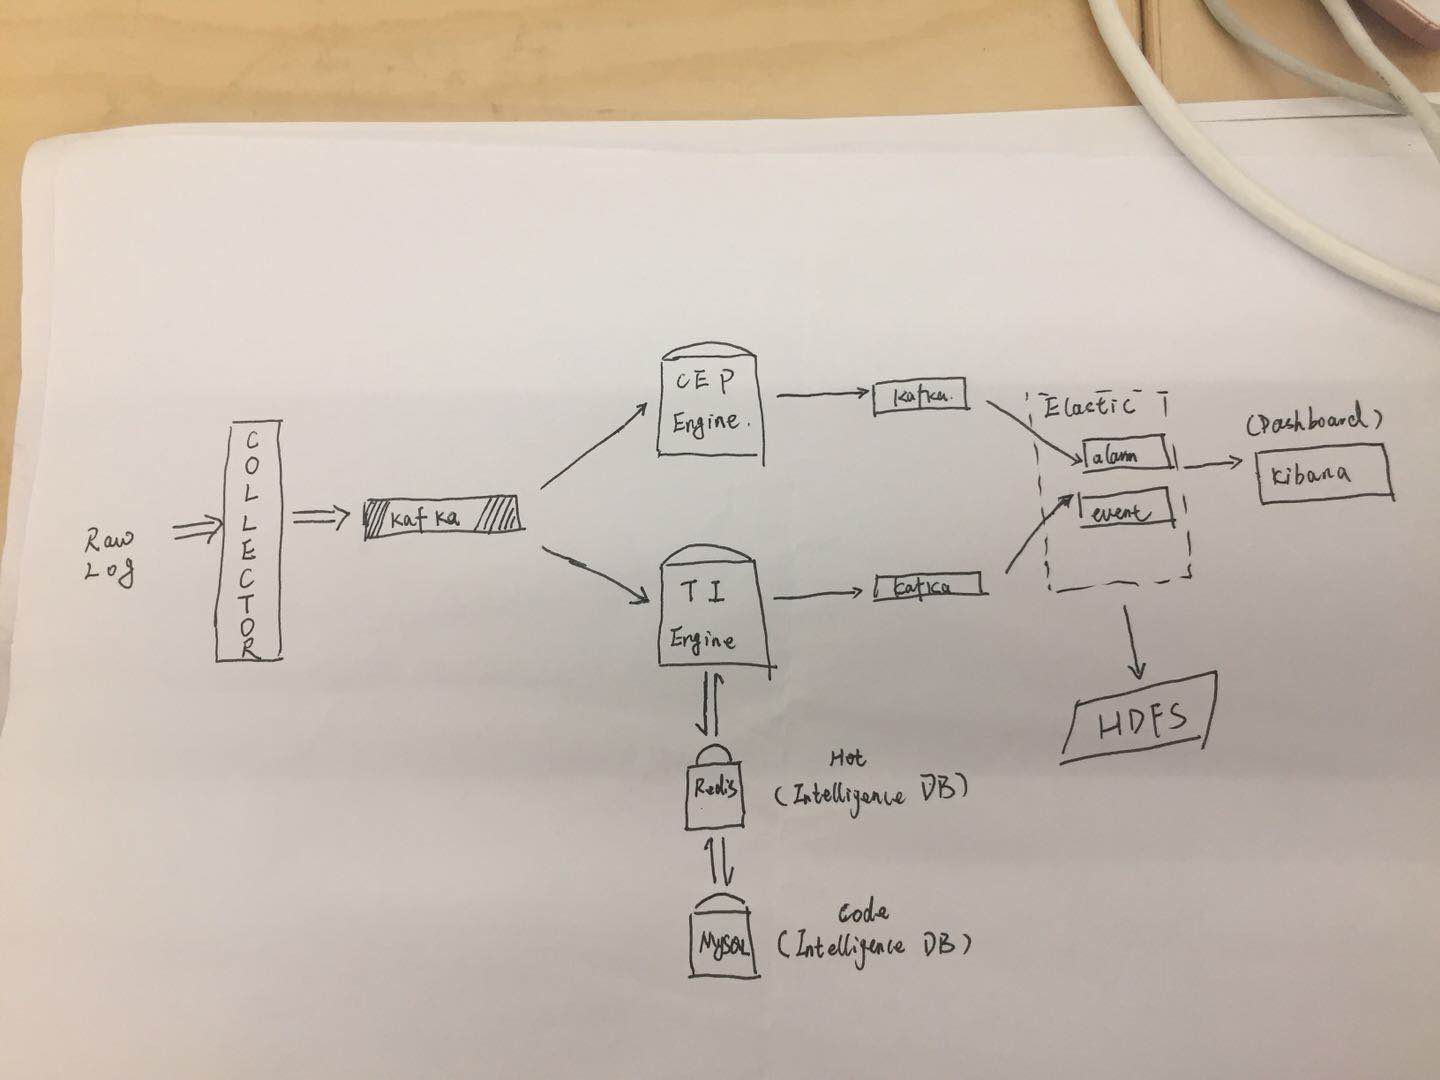 Raw
Log
COLLECTOR
Kafka
CEP
Engine.
TI
Engine
Kafka.
Kafka
Elastic
alarm
event
(Dashboard)
Kibana
HDFS
Redis
Hot
(Intelligence DB)
MySQL
Code
(Intelligence DB)